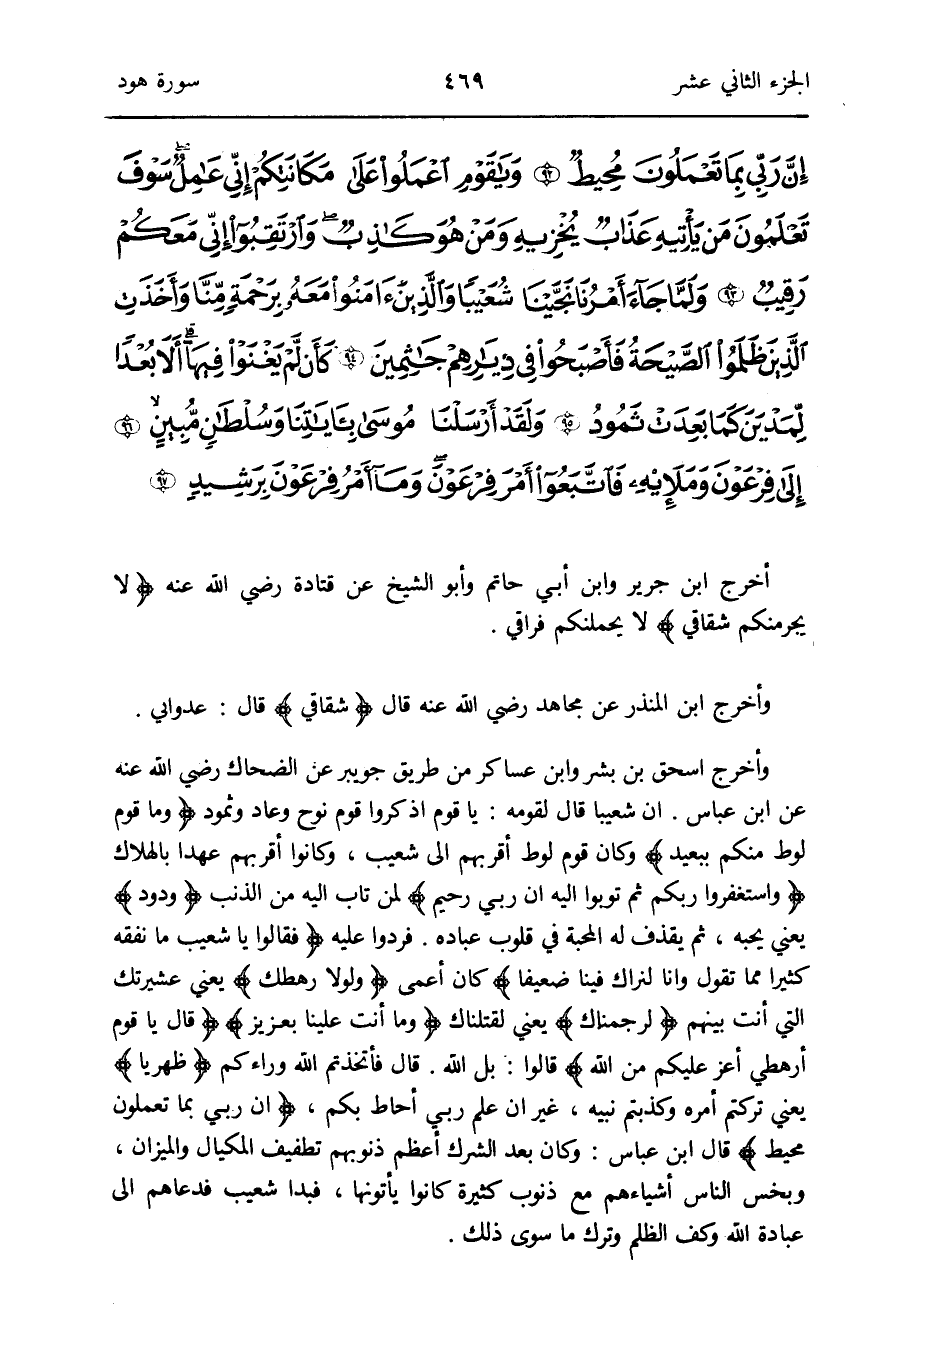 الجزء الثاني عشر ٤٦٩ سورة هود
إِنَّ رَبِّي بِمَا تَعْمَلُونَ مُحِيطٌ ۝٩٢ وَيَٰقَوْمِ ٱعْمَلُوا۟ عَلَىٰ مَكَانَتِكُمْ إِنِّي عَٰمِلٌ ۖ سَوْفَ
تَعْلَمُونَ مَن يَأْتِيهِ عَذَابٌ يُخْزِيهِ وَمَنْ هُوَ كَٰذِبٌ ۖ وَٱرْتَقِبُوٓا۟ إِنِّي مَعَكُمْ
رَقِيبٌ ۝٩٣ وَلَمَّا جَآءَ أَمْرُنَا نَجَّيْنَا شُعَيْبًا وَٱلَّذِينَ ءَامَنُوا۟ مَعَهُۥ بِرَحْمَةٍ مِّنَّا وَأَخَذَتِ
ٱلَّذِينَ ظَلَمُوا۟ ٱلصَّيْحَةُ فَأَصْبَحُوا۟ فِي دِيَٰرِهِمْ جَٰثِمِينَ ۝٩٤ كَأَن لَّمْ يَغْنَوْا۟ فِيهَآ ۗ أَلَا بُعْدًا
لِّمَدْيَنَ كَمَا بَعِدَتْ ثَمُودُ ۝٩٥ وَلَقَدْ أَرْسَلْنَا مُوسَىٰ بِـَٔايَٰتِنَا وَسُلْطَٰنٍ مُّبِينٍ ۝٩٦
إِلَىٰ فِرْعَوْنَ وَمَلَإِي۟هِۦ فَٱتَّبَعُوٓا۟ أَمْرَ فِرْعَوْنَ ۖ وَمَآ أَمْرُ فِرْعَوْنَ بِرَشِيدٍ ۝٩٧
أخرج ابن جرير وابن أبي حاتم وأبو الشيخ عن قتادة رضي الله عنه ﴿ لا
يجرمنكم شقاقي ﴾ لا يحملنكم فراقي .
وأخرج ابن المنذر عن مجاهد رضي الله عنه قال ﴿ شقاقي ﴾ قال : عدواني .
وأخرج اسحق بن بشر وابن عساكر من طريق جويبر عن الضحاك رضي الله عنه
عن ابن عباس . ان شعيبا قال لقومه : يا قوم اذكروا قوم نوح وعاد وثمود ﴿ وما قوم
لوط منكم ببعيد ﴾ وكان قوم لوط أقربهم الى شعيب ، وكانوا أقربهم عهدا بالهلاك
﴿ واستغفروا ربكم ثم توبوا اليه ان ربي رحيم ﴾ لمن تاب اليه من الذنب ﴿ ودود ﴾
يعني يحبه ، ثم يقذف له المحبة في قلوب عباده . فردوا عليه ﴿ فقالوا يا شعيب ما نفقه
كثيرا مما تقول وانا لنراك فينا ضعيفا ﴾ كان أعمى ﴿ ولولا رهطك ﴾ يعني عشيرتك
التي أنت بينهم ﴿ لرجمناك ﴾ يعني لقتلناك ﴿ وما أنت علينا بعزيز ﴾ ﴿ قال يا قوم
أرهطي أعز عليكم من الله ﴾ قالوا : بل الله . قال فأتخذتم الله وراءكم ﴿ ظهريا ﴾
يعني تركتم أمره وكذبتم نبيه ، غير ان علم ربي أحاط بكم ، ﴿ ان ربي بما تعملون
محيط ﴾ قال ابن عباس : وكان بعد الشرك أعظم ذنوبهم تطفيف المكيال والميزان ،
وبخس الناس أشياءهم مع ذنوب كثيرة كانوا يأتونها ، فبدا شعيب فدعاهم الى
عبادة الله وكف الظلم وترك ما سوى ذلك .